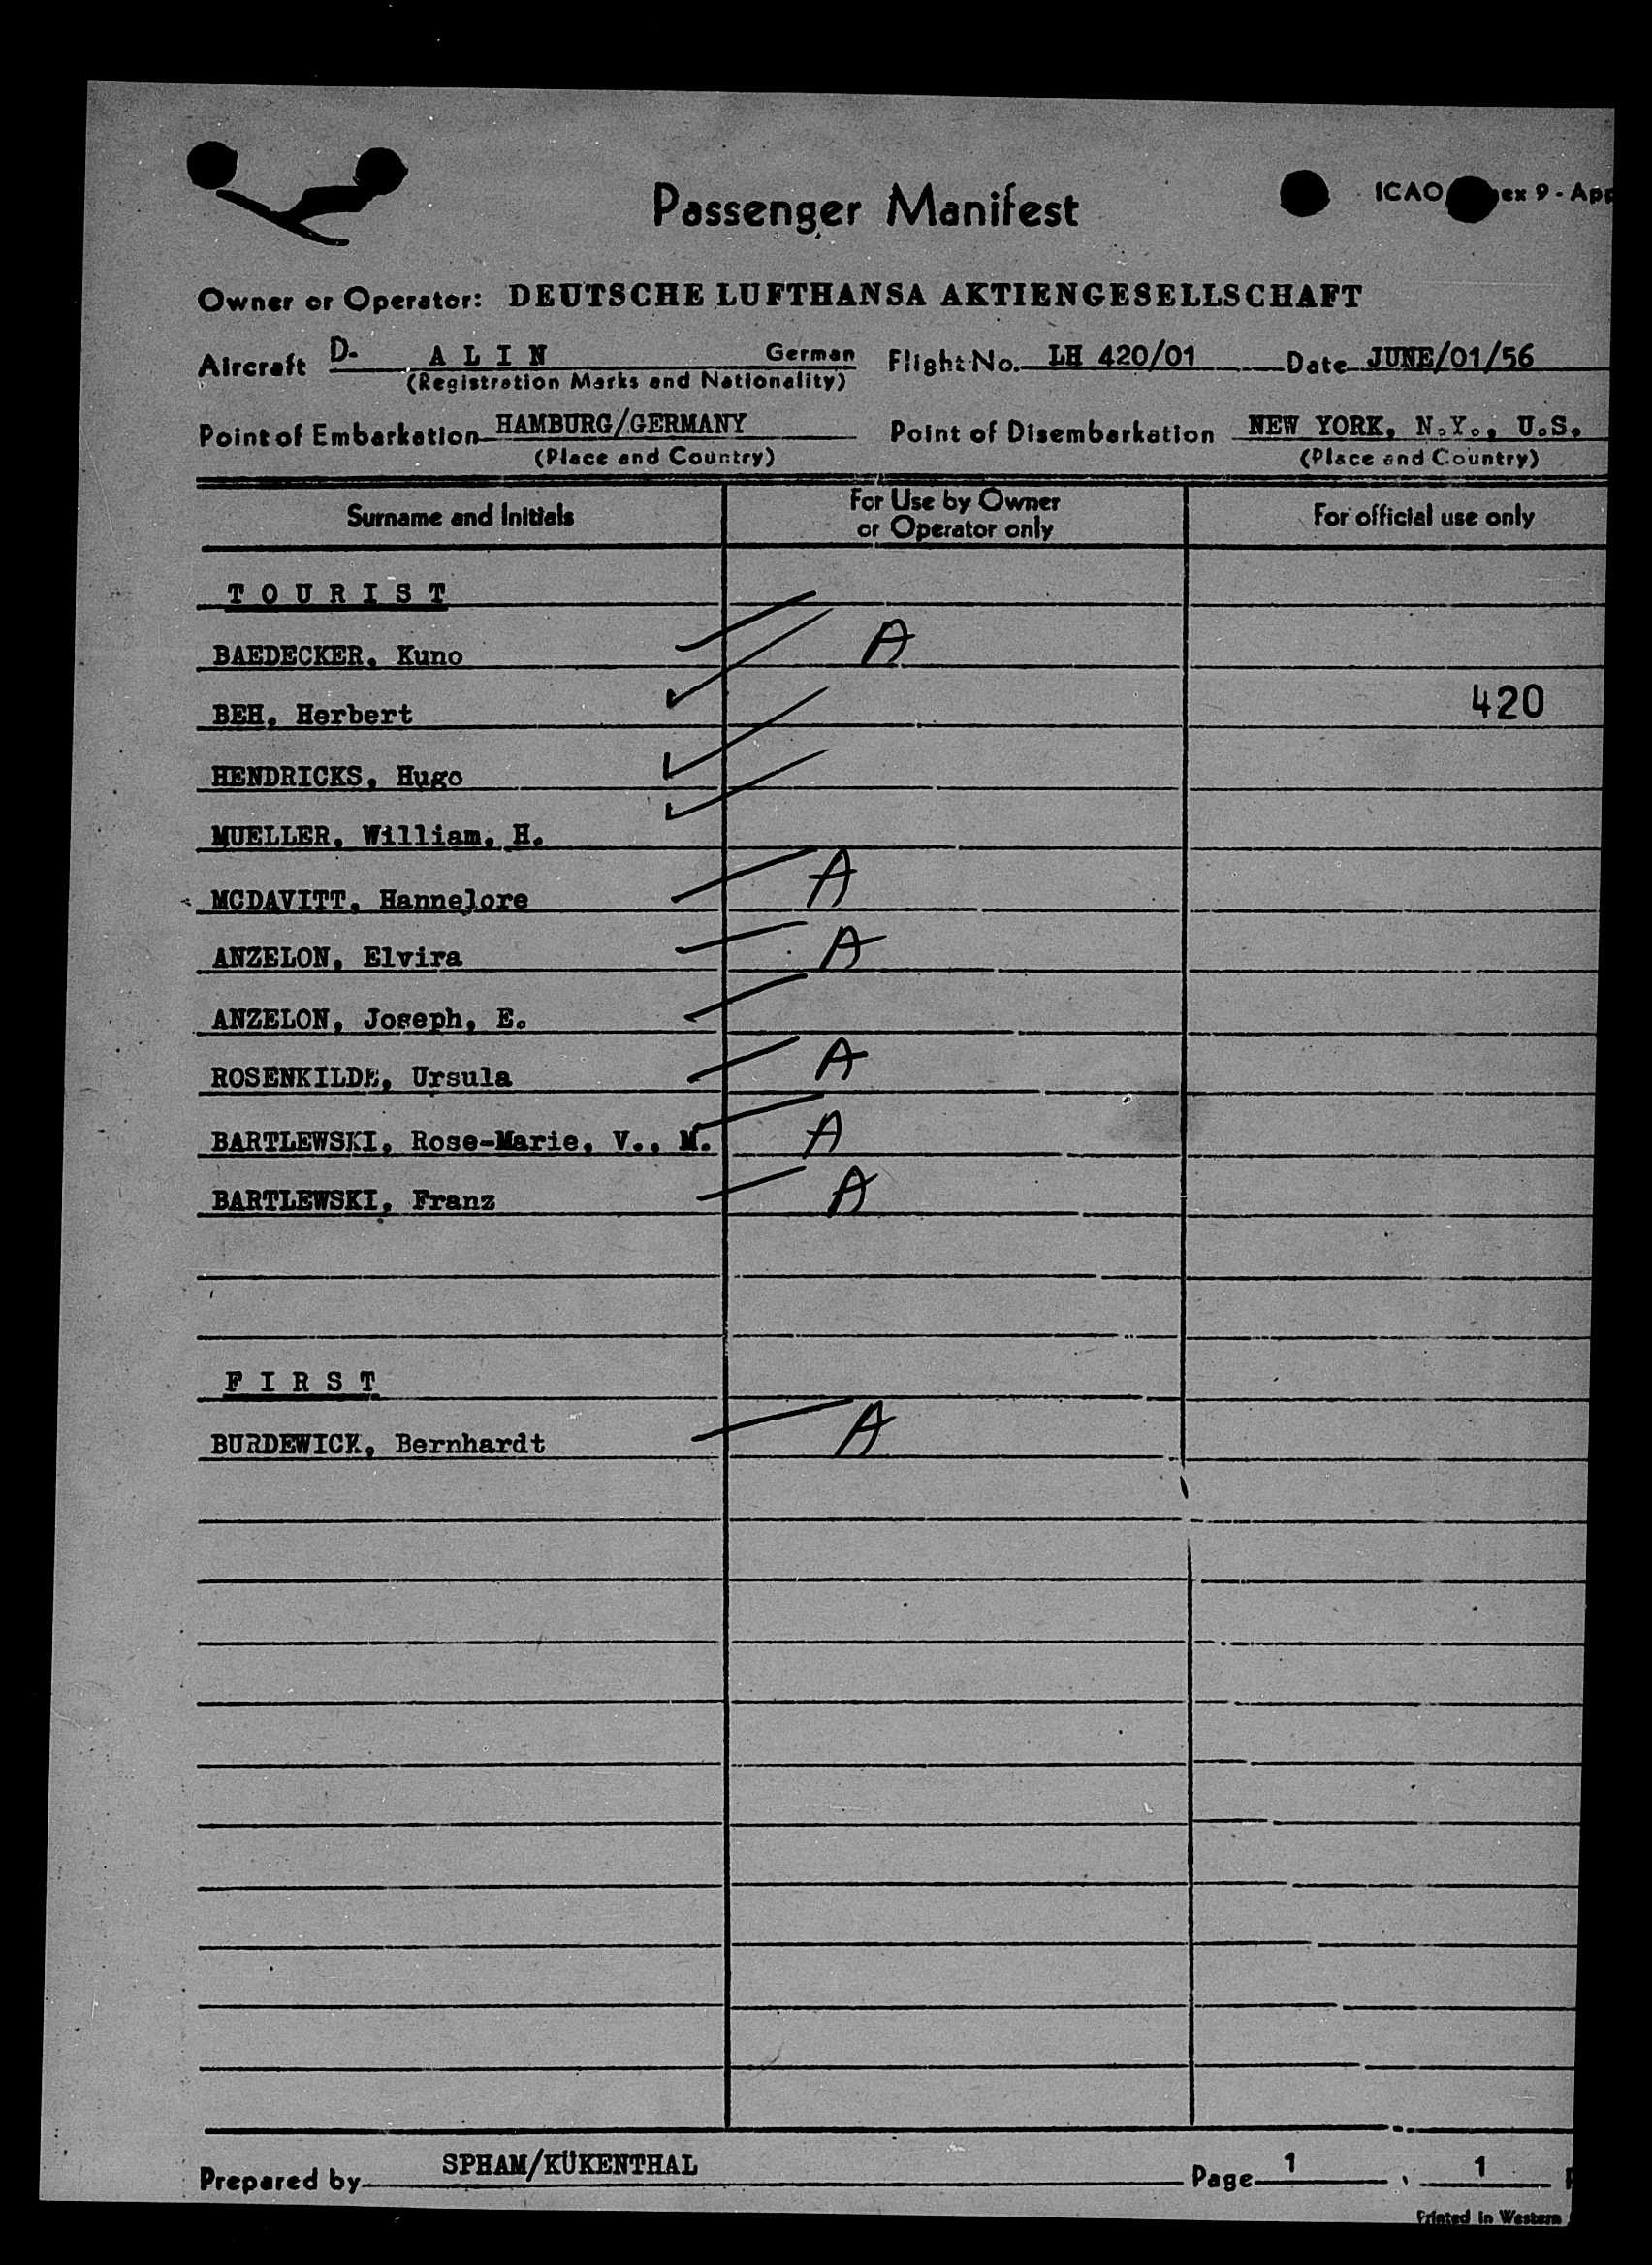 Passenger Manifest
ICAO ex 9 - App
Owner or Operator: DEUTSCHE LUFTHANSA AKTIENGESELLSCHAFT
Aircraft D- A L I N German Flight No. LH 420/01 Date JUNE/01/56
(Registration Marks and Nationality)
Point of Embarkation HAMBURG/GERMANY Point of Disembarkation NEW YORK, N.Y., U.S.
(Place and Country) (Place and Country)
Surname and Initials For Use by Owner or Operator only For official use only
T O U R I S T
BAEDECKER, Kuno A
BEH, Herbert 420
HENDRICKS, Hugo
MUELLER, William, H.
MCDAVITT, Hannelore A
ANZELON, Elvira A
ANZELON, Joseph, E.
ROSENKILDE, Ursula A
BARTLEWSKI, Rose-Marie, V., M. A
BARTLEWSKI, Franz A
F I R S T
BURDEWICK, Bernhardt A
Prepared by SPHAM/KÜKENTHAL Page 1 1
Printed in Western